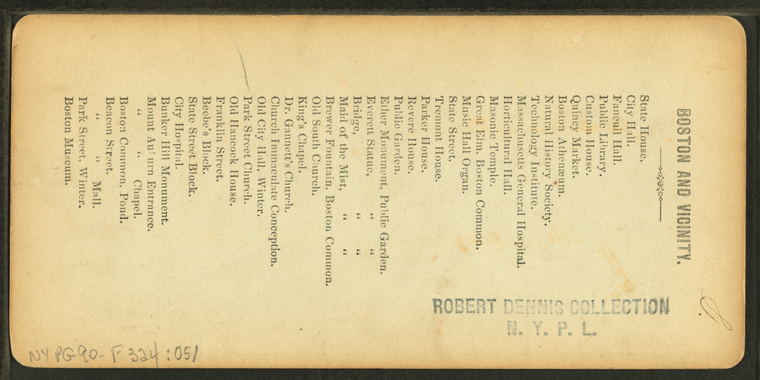 BOSTON AND VICINITY.
State House.
City Hall.
Faneuil Hall.
Public Library.
Custom House.
Quincy Market.
Boston Athenæum.
Natural History Society.
Technology Institute.
Massachusetts General Hospital.
Horticultural Hall.
Masonic Temple.
Great Elm, Boston Common.
Music Hall Organ.
State Street.
Tremont House.
Parker House.
Revere House.
Public Garden.
Ether Monument, Public Garden.
Everett Statue, " "
Bridge, " "
Maid of the Mist, " "
Brewer Fountain, Boston Common.
Old South Church.
King's Chapel.
Dr. Gannett's Church.
Church Immaculate Conception.
Old City Hall, Winter.
Park Street Church.
Old Hancock House.
Franklin Street.
Beebe's Block.
State Street Block.
City Hospital.
Bunker Hill Monument.
Mount Auburn Entrance.
" " Chapel.
Boston Common, Pond.
" " Mall.
Beacon Street.
Park Street, Winter.
Boston Museum.
ROBERT DENNIS COLLECTION
N. Y. P. L.
NYPG90-F324:051